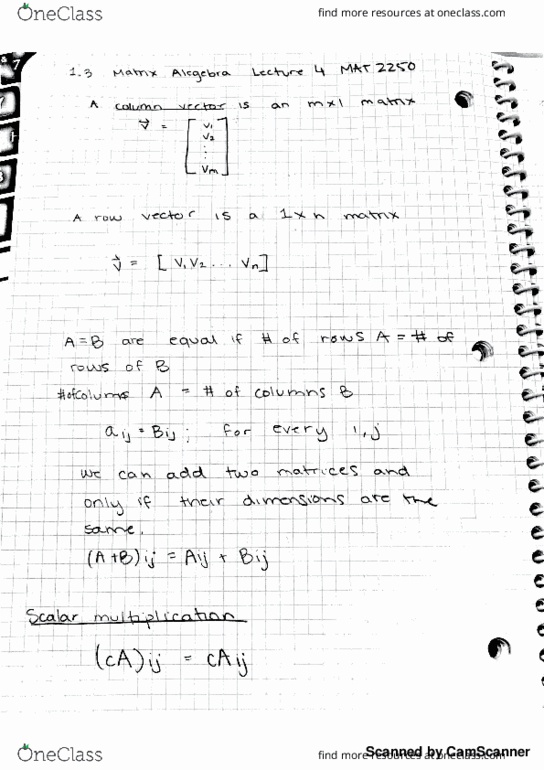 OneClass
find more resources at oneclass.com
1.3 Matrix Alegebra Lecture 4 MAT 2250
A column vector is an mx1 matrix
v⃗ = [ v1
v2
⋮
vm ]
A row vector is a 1xn matrix
v⃗ = [ v1 v2 ... vn ]
A=B are equal if # of rows A = # of
rows of B
#ofcolums A = # of columns B
aij = Bij ; for every i,j
we can add two matrices and
only if their dimensions are the
same.
(A+B)ij = Aij + Bij
Scalar multiplication
(cA)ij = cAij
OneClass
find more resources at oneclass.com
Scanned by CamScanner